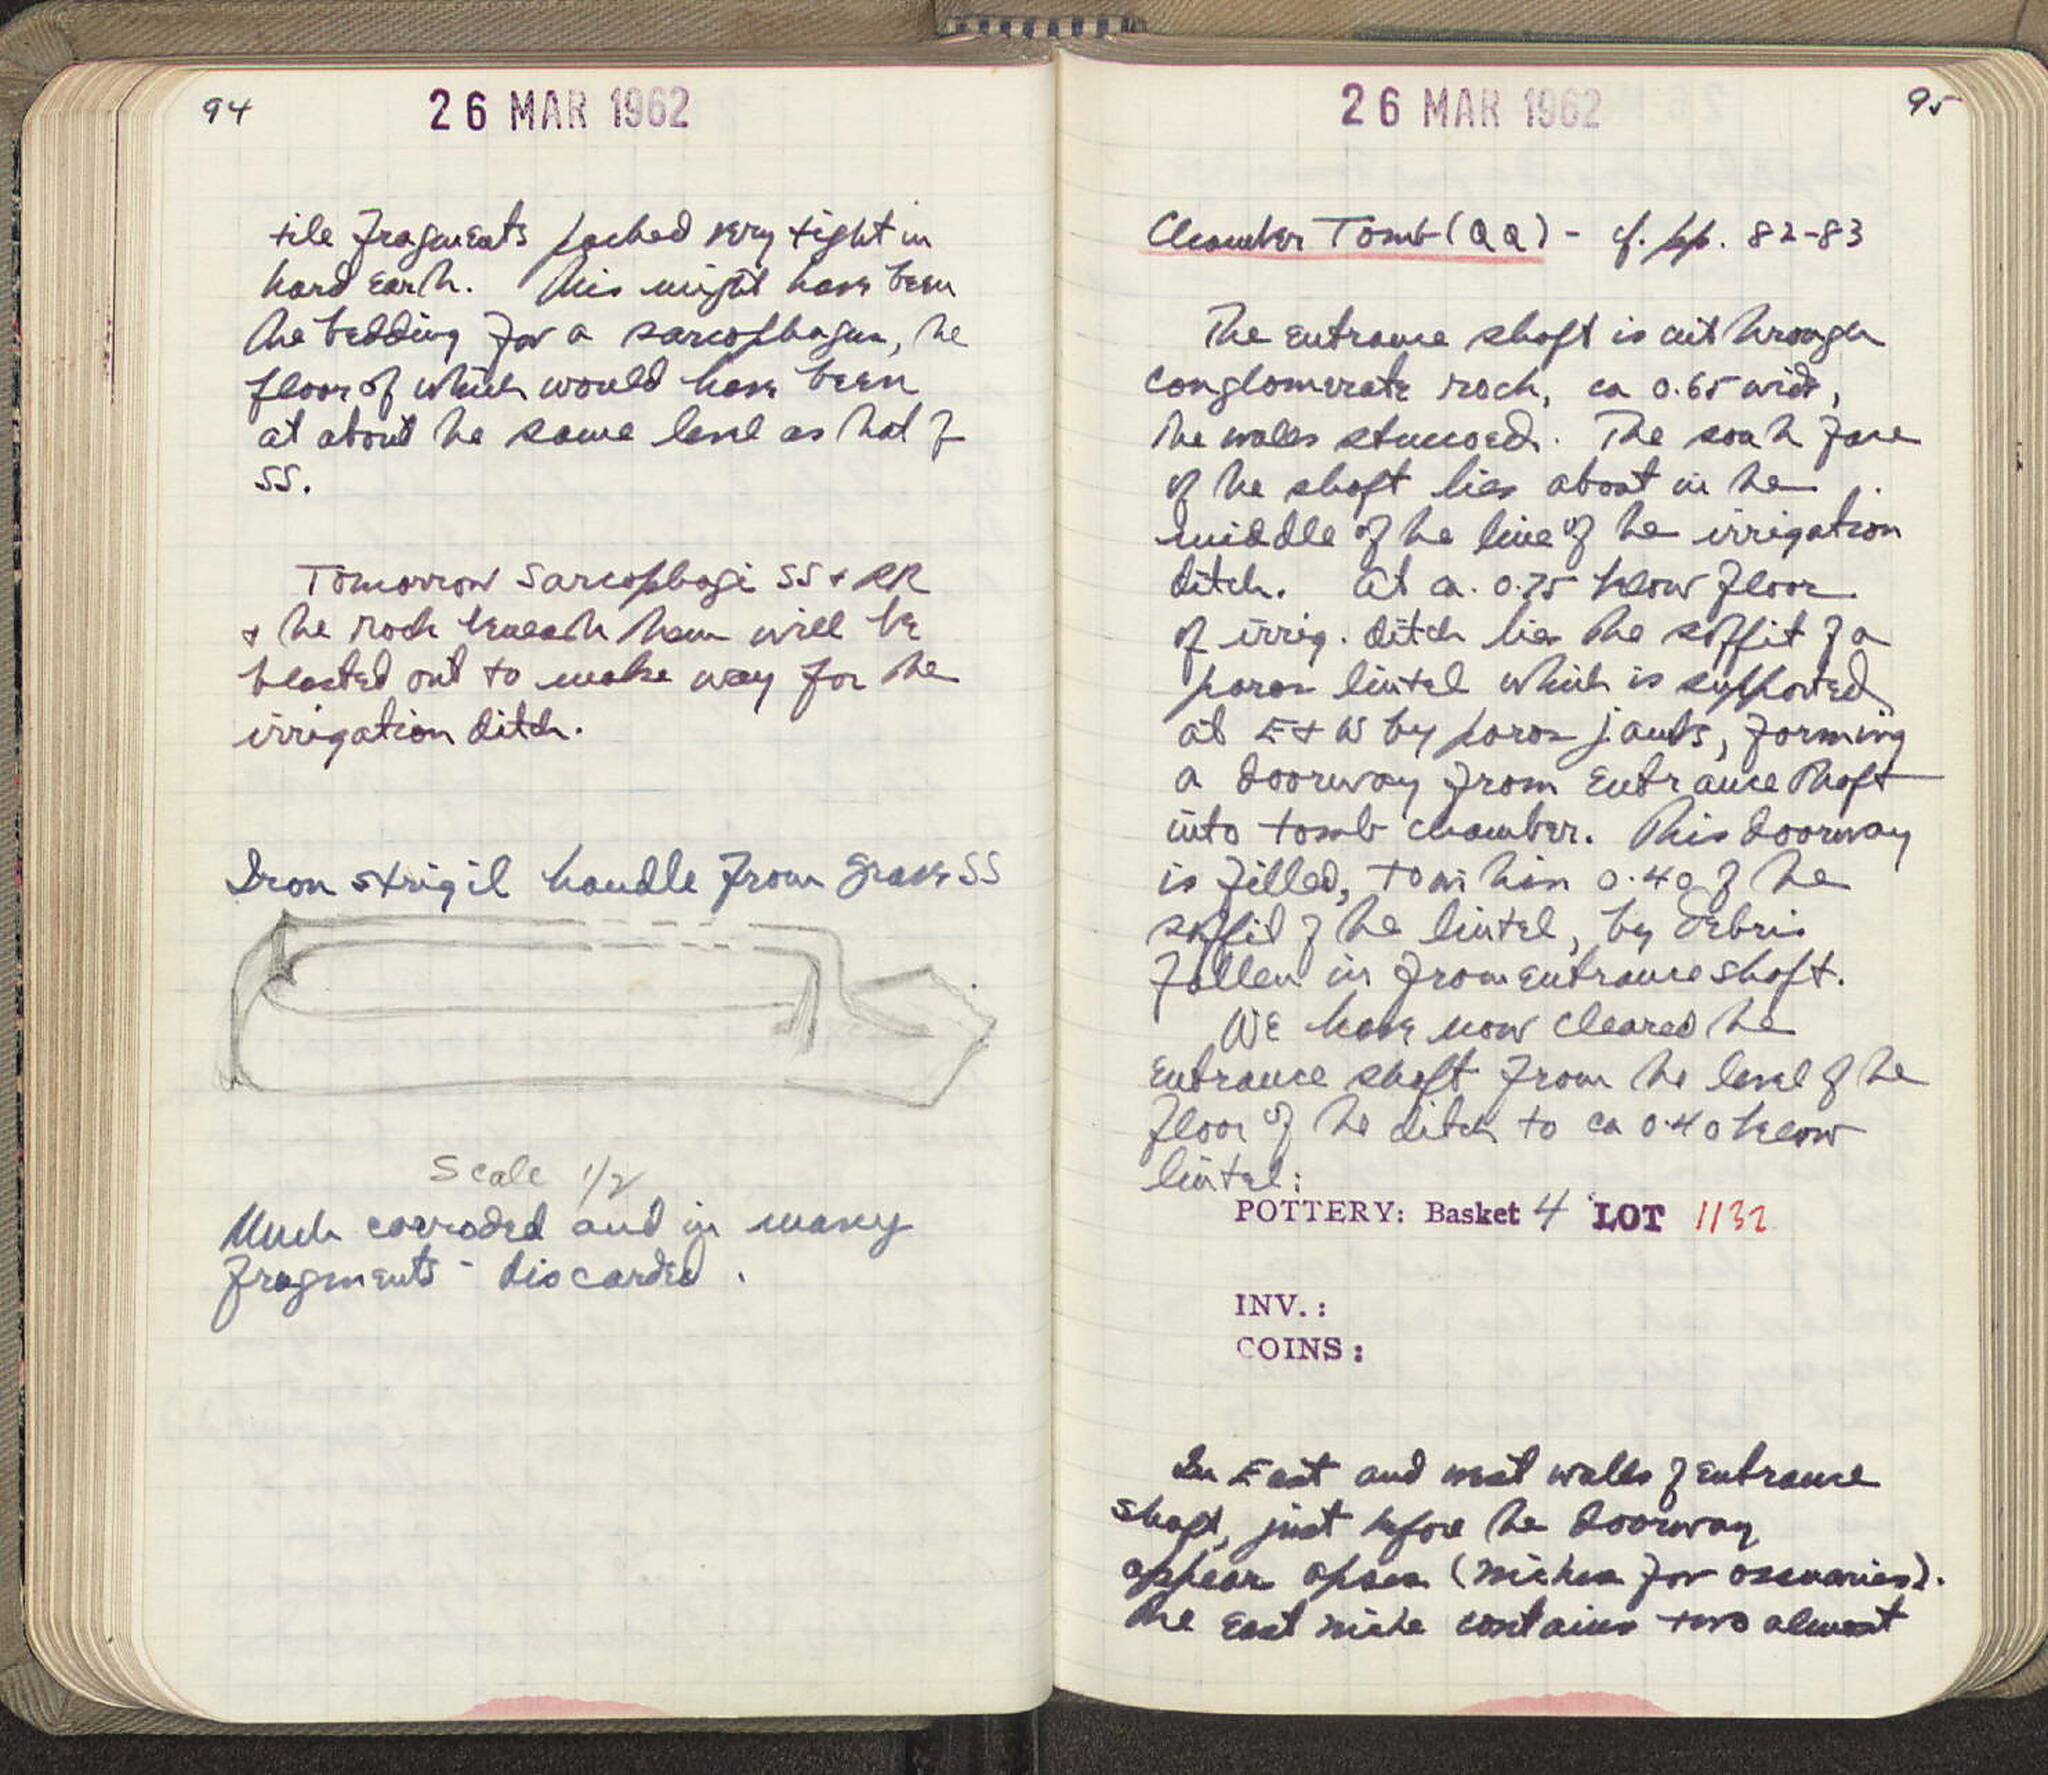 94
26 MAR 1962
tile fragments packed very tight in
hard earth. This might have been
the bedding for a sarcophagus, the
floor of which would have been
at about the same level as that of
SS.
Tomorrow Sarcophagi SS & RR
& the rock beneath them will be
blasted out to make way for the
irrigation ditch.
Iron strigil handle from grave SS
Scale 1/2
Much corroded and in many
fragments - discarded.
26 MAR 1962
95
Chamber Tomb (QQ) - cf. pp. 82-83
The entrance shaft is cut through
conglomerate rock, ca 0.65 wide,
the walls stuccoed. The south face
of the shaft lies about in the
middle of the line of the irrigation
ditch. At ca. 0.75 below floor
of irrig. ditch lies the soffit of a
poros lintel which is supported
at E & W by poros jambs, forming
a doorway from entrance shaft
into tomb chamber. This doorway
is filled, to within 0.40 of the
soffit of the lintel, by debris
fallen in from entrance shaft.
We have now cleared the
entrance shaft from the level of the
floor of the ditch to ca 0.40 below
lintel:
POTTERY: Basket 4 LOT 1132
INV.:
COINS:
In East and west walls of entrance
shaft, just before the doorway
appear apses (niches for ossuaries).
The East niche contains two almost